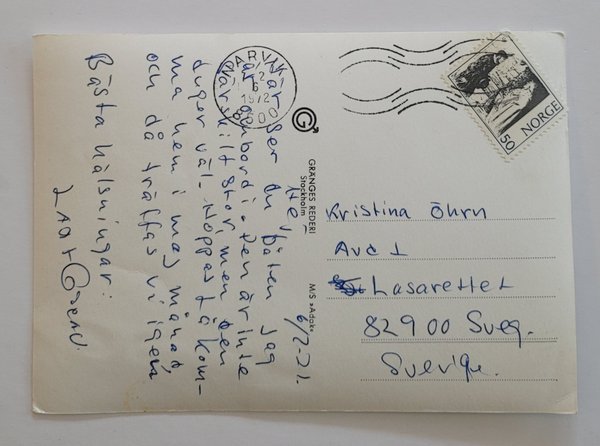 6/2-71.
Hej
Här ser du båten jag
är ombord i. Den är inte
särskilt stor, men den
duger väl. Hoppas få kom-
ma hem i maj månad,
och då träffas vi igen
Bästa hälsningar:
GRANGES REDERI
Stockholm
M/S »Adak»
NARVIK
1972
8500
NORGE
50
Kristina Öhrn
Avd 1
Lasarettet
82900 Sveg.
Sverige.